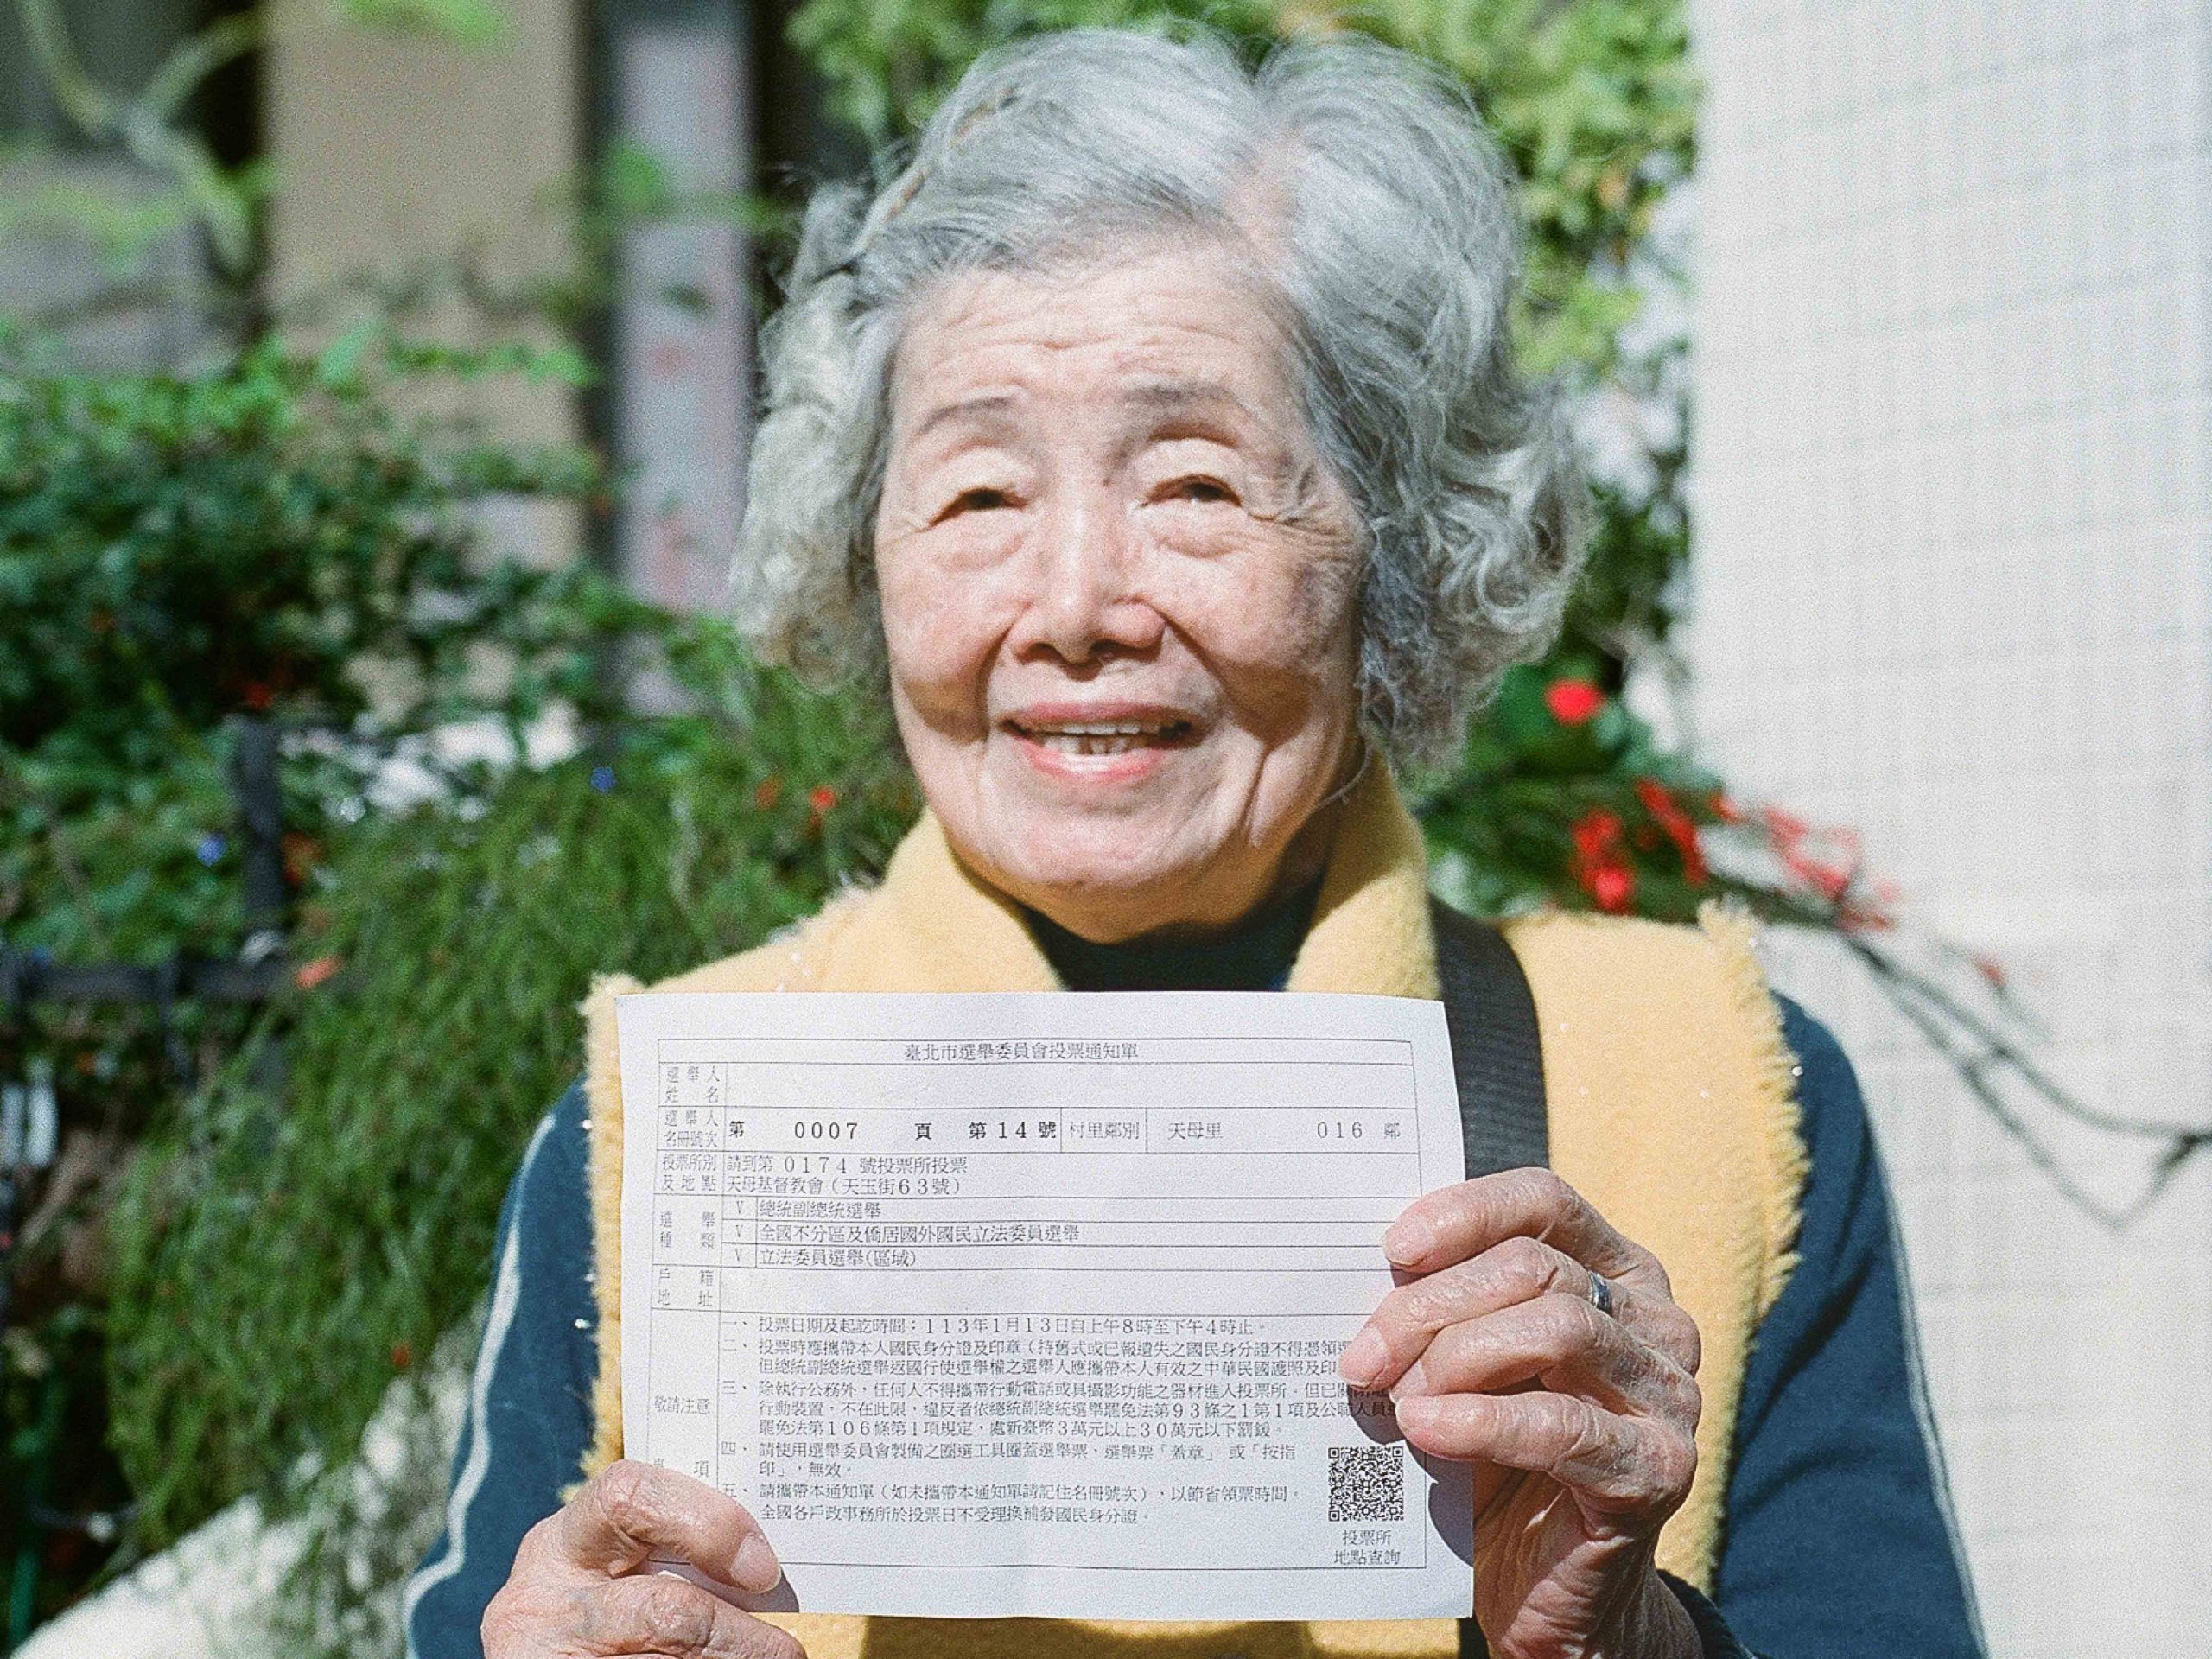 臺北市選舉委員會投票通知單
選舉人
姓名
選舉人
名冊號次 第 0007 頁 第14號 村里鄰別 天母里 016 鄰
投票所別 請到第 0174 號投票所投票
及地點 天母基督教會(天玉街63號)
選舉
種類
V 總統副總統選舉
V 全國不分區及僑居國外國民立法委員選舉
V 立法委員選舉(區域)
戶籍
地址
敬請注意
事項
一、投票日期及起訖時間:113年1月13日自上午8時至下午4時止。
二、投票時應攜帶本人國民身分證及印章(持舊式或已報遺失之國民身分證不得憑領選
但總統副總統選舉返國行使選舉權之選舉人應攜帶本人有效之中華民國護照及印
三、除執行公務外,任何人不得攜帶行動電話或具攝影功能之器材進入投票所。但已關
行動裝置,不在此限,違反者依總統副總統選舉罷免法第93條之1第1項及公職人員
罷免法第106條第1項規定,處新臺幣3萬元以上30萬元以下罰鍰。
四、請使用選舉委員會製備之圈選工具圈蓋選舉票,選舉票「蓋章」或「按指
印」,無效。
五、請攜帶本通知單(如未攜帶本通知單請記住名冊號次),以節省領票時間。
全國各戶政事務所於投票日不受理換補發國民身分證。
投票所
地點查詢